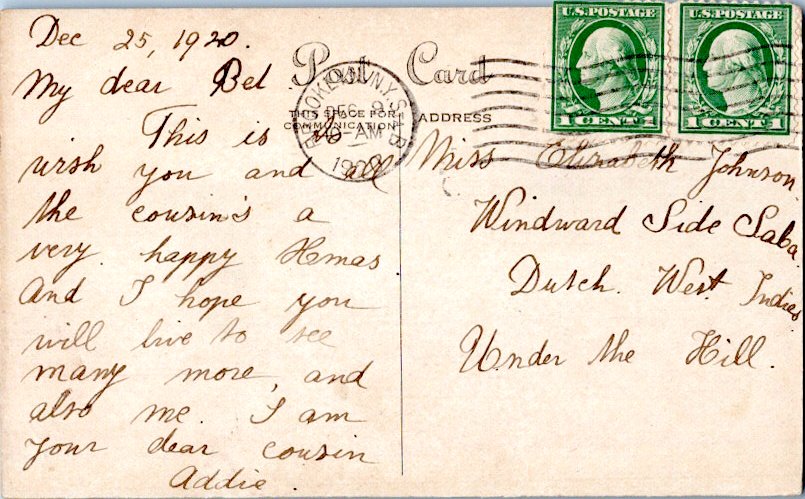 Dec 25, 1920.
My dear Bel
Post Card
BROOKLYN, N.Y. STA. B
DEC 9
AM
1920
THIS SPACE FOR
COMMUNICATION
ADDRESS
U.S. POSTAGE
1 CENT 1
U.S. POSTAGE
1 CENT 1
This is to
wish you and all
the cousin's a
very happy Xmas
And I hope you
will live to see
many more, and
also me. I am
your dear cousin
Addie.
Miss Elizabeth Johnson
Windward Side Saba
Dutch. West. Indies
Under the Hill.